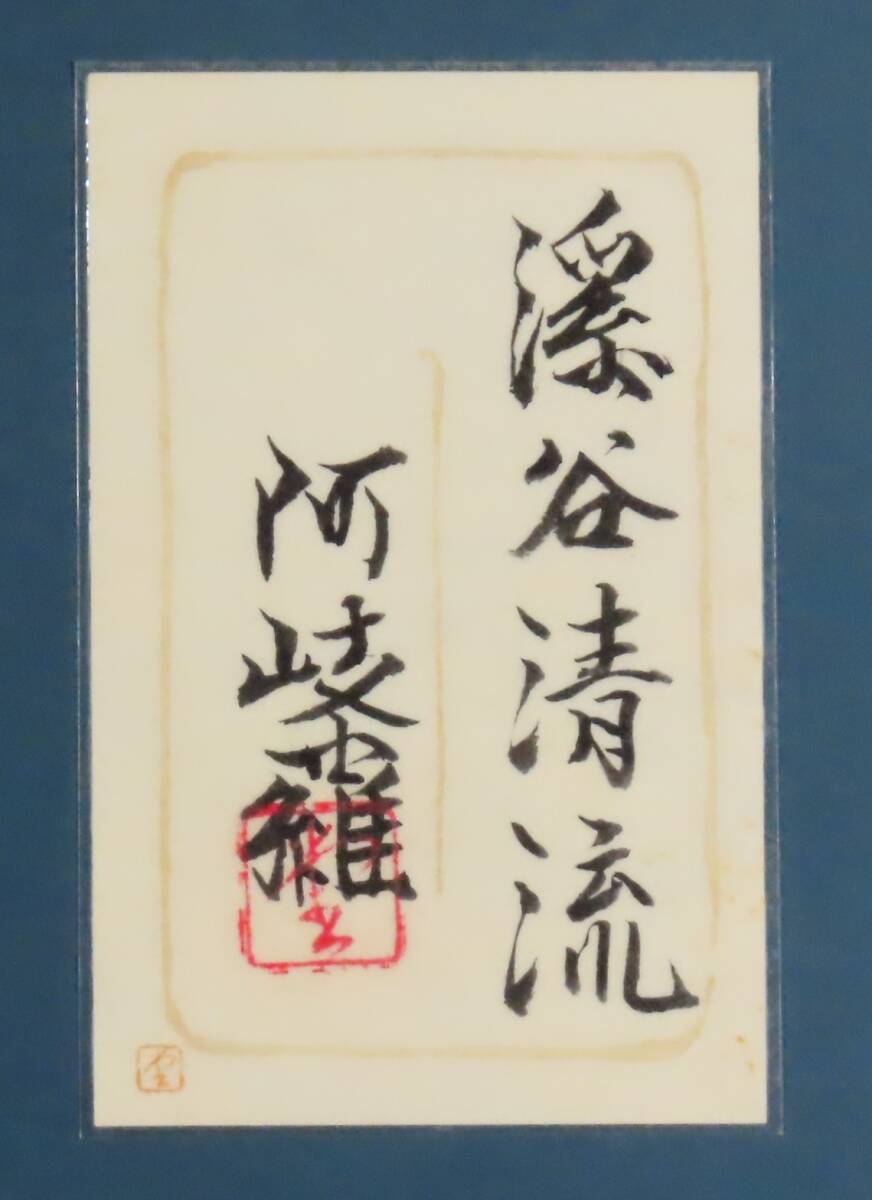 渓谷清流
阿岐羅